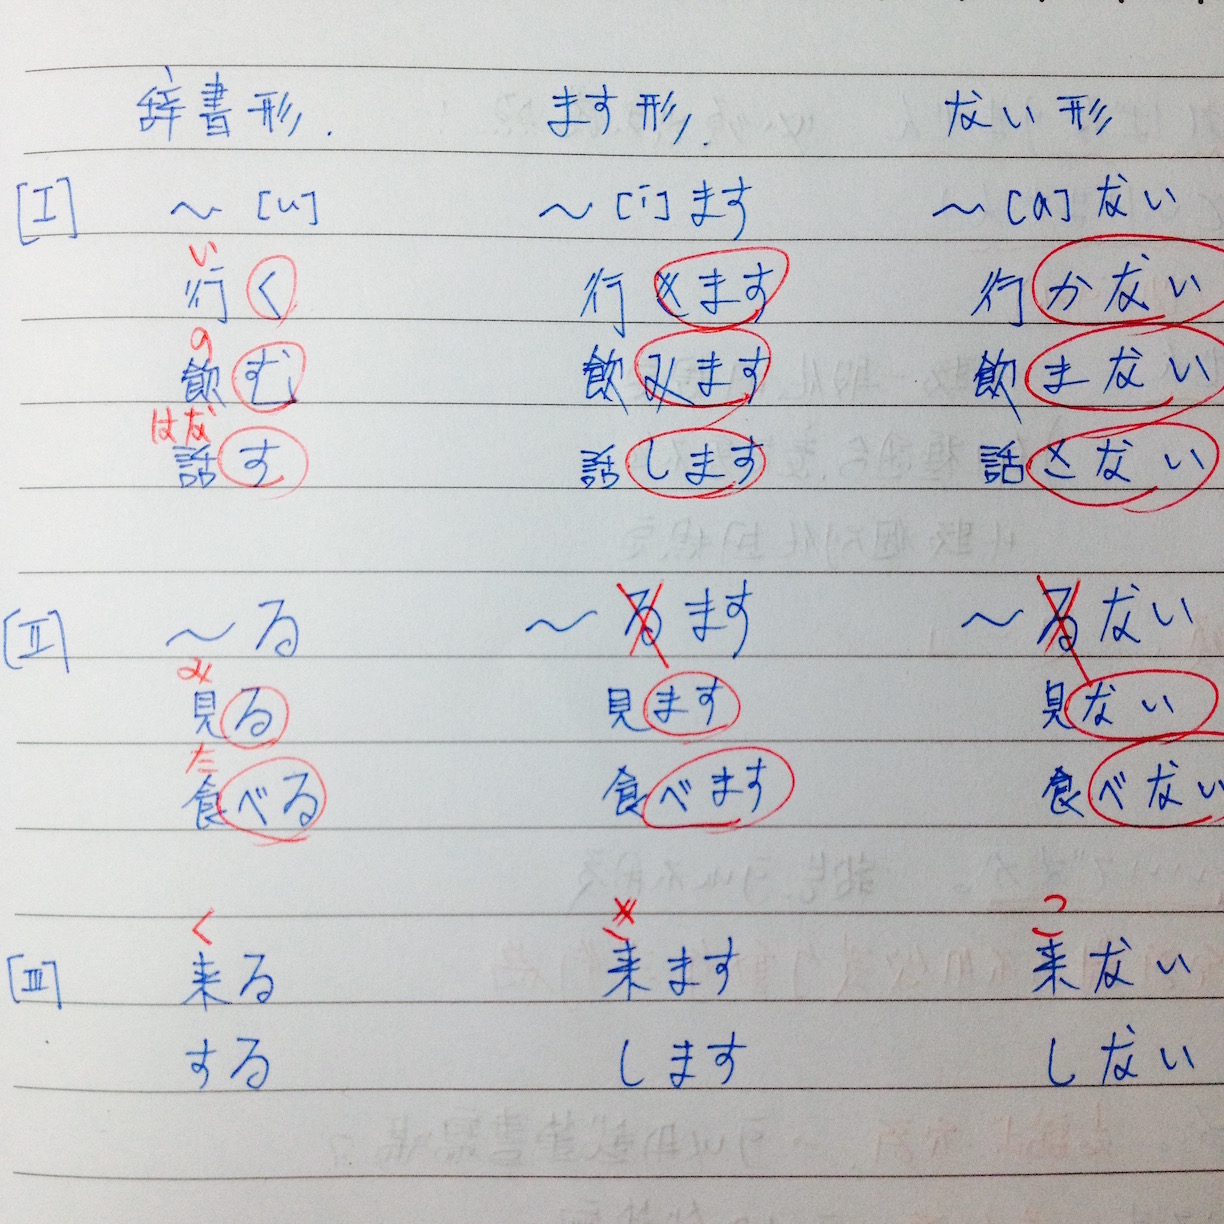 辞書形. ます形. ない形
[I] ～[u] ～[i]ます ～[a]ない
い
行く 行きます 行かない
の
飲む 飲みます 飲まない
はな
話す 話します 話さない
[II] ～る ～るます ～るない
み
見る 見ます 見ない
た
食べる 食べます 食べない
く き こ
[III] 来る 来ます 来ない
する します しない